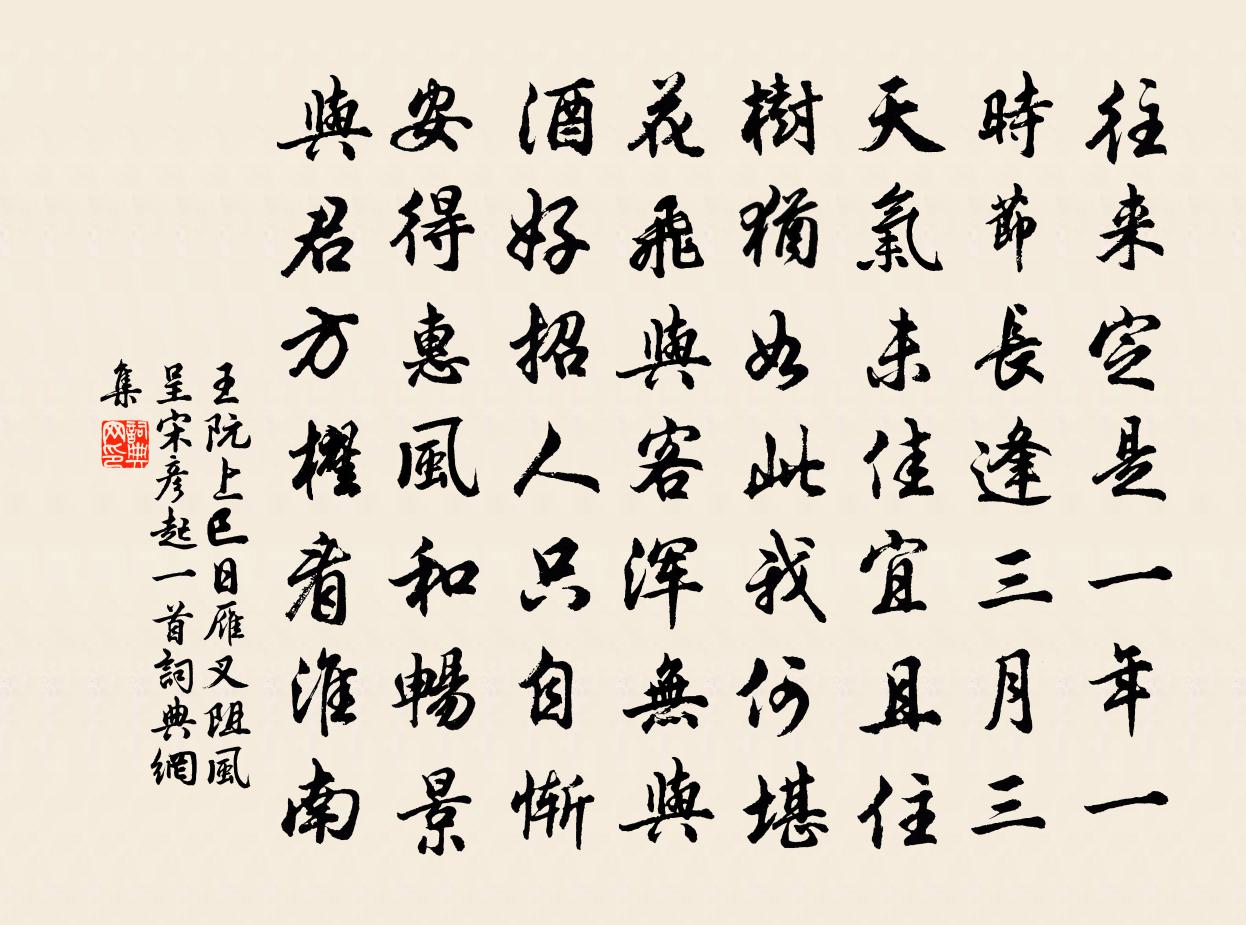 往来定是一年一
時節長逢三月三
天氣未佳宜且住
樹猶如此我何堪
花飛與客渾無與
酒好招人只自慚
安得惠風和暢景
與君方櫂看淮南
王阮上巳日雁叉阻風
呈宋彦起一首詞典網
集
詞典网印